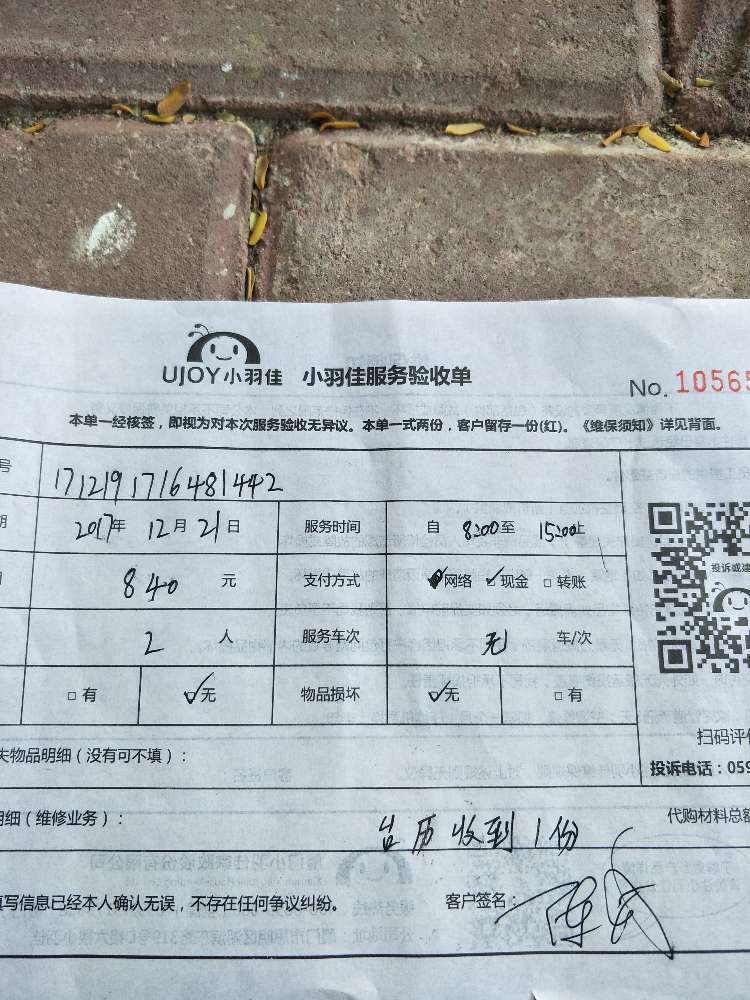 UJOY小羽佳 小羽佳服务验收单
No. 10565
本单一经核签，即视为对本次服务验收无异议。本单一式两份，客户留存一份(红)。《维保须知》详见背面。
号 1712191716481442
期 2017年 12月 21日 服务时间 自 8:00至 15:00止
投诉或建
840 元 支付方式 网络 ✓现金 □转账
2 人 服务车次 无 车/次
□有 ☑无 物品损坏 ☑无 □有
扫码评价
失物品明细（没有可不填）：
投诉电话：059
明细（维修业务）：
代购材料总额
台历收到1份
填写信息已经本人确认无误，不存在任何争议纠纷。 客户签名：